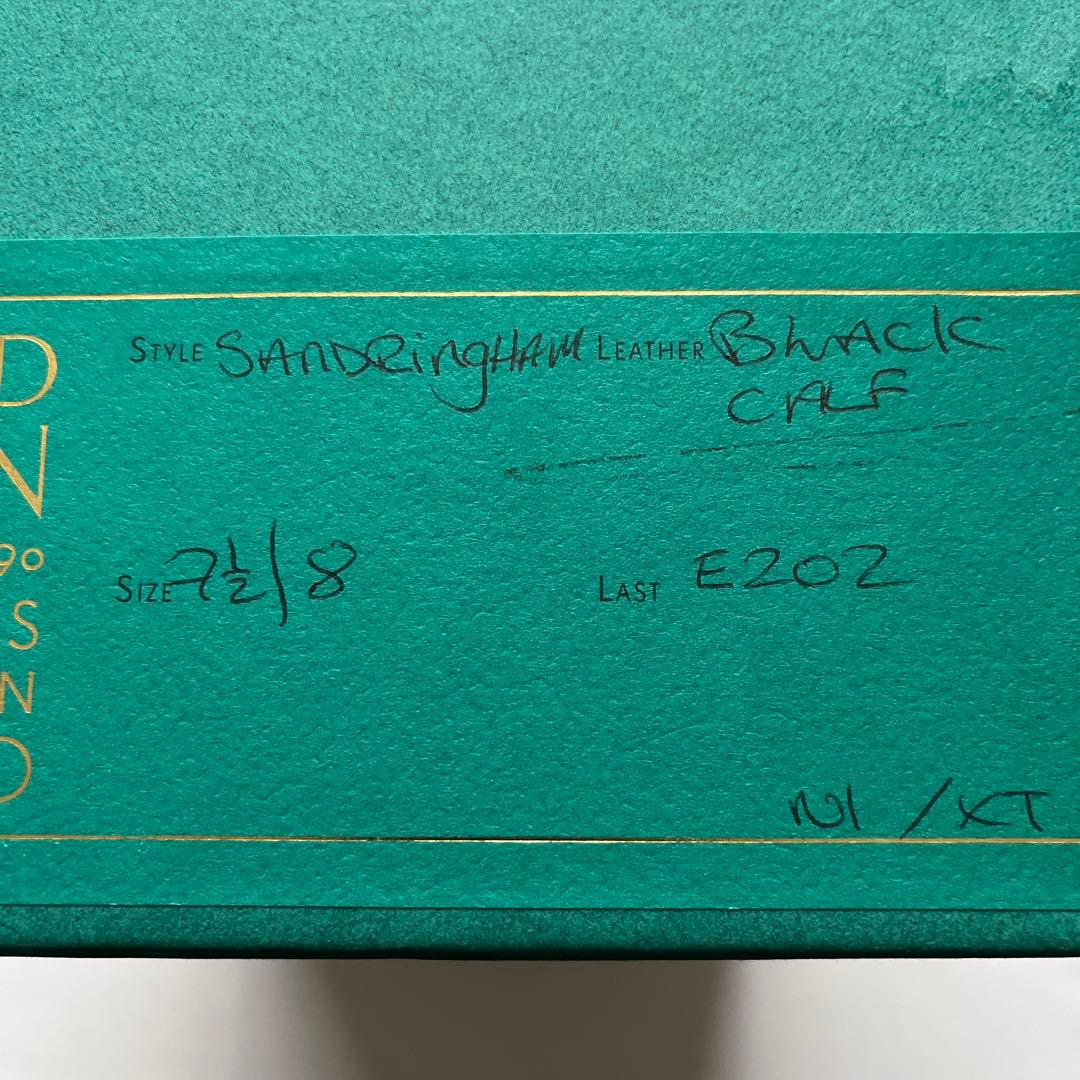 D
N
90
S
N
O
STYLE SANDRingHAM LEATHER BLACK
CALF
SIZE 7½/8 LAST E202
N1 /XT